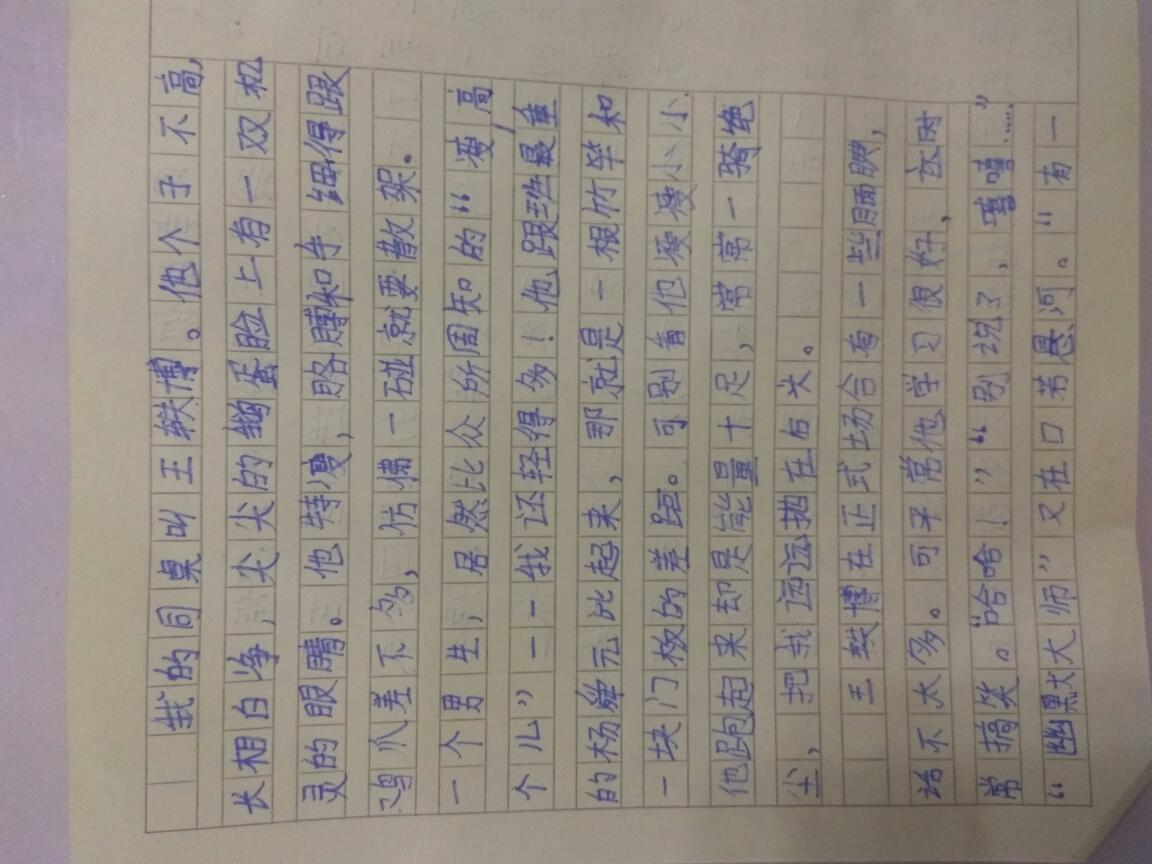 我的同桌叫王轶博。他个子不高,
长相白净,尖尖的鹅蛋脸上有一双机
灵的眼睛。他特瘦,胳膊和手细得跟
鸡爪差不多,仿佛一碰就要散架。
一个男生,居然比众所周知的“凌高
个儿”——我还轻得多!他跟班最重
的杨舜元比起来,那就是一根竹竿和
一块门板的差距。可别看他瘦瘦小小,
他跑起来却是能量十足,常常一骑绝
尘,把我远远抛在后头。
王轶博在正式场合有一些腼腆,
话不太多。可平常他学习很好,还时
常搞笑。“哈哈!”“别说了,嘻嘻……”
“幽默大师”又在口若悬河。“有一